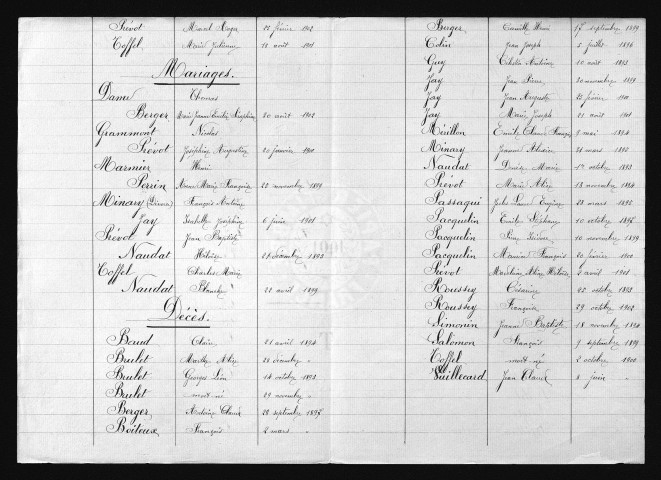 Prévot Marcel Roger 22 février 1902
Coffel Marie Julienne 12 août 1901
Mariages.
Dame Thomas
Berger Marie Jeanne Emilie 20 août 1902
Grammont Nicolas
Prévot Joséphine Augustine 20 janvier 1901
Marmier Henri
Perrin Marie Françoise 22 novembre 1899
Minary François Antoine
Jay Joséphine 6 juin 1901
Prévot Jean Baptiste
Naudat décembre 1893
Coffel Charles Marie
Naudat Blanche 22 avril 1899
Décès.
Beud Claire 21 avril 1894
Brulet Marthe 28 décembre "
Brulet Georges Léon 14 octobre 1893
Brulet mort né 29 novembre "
Berger Claude 23 septembre 1895
Boiteux François 2 mars
Berger Camille Henri 17 septembre 1899
Colin Jean Joseph 5 juillet 1896
Guy Antoine 10 août 1893
Jay Jean Pierre 20 novembre 1899
Jay Jean Auguste 23 février 1900
Jay Marie Joseph 21 août 1901
Mérillon Emile Claude François 9 mai 1894
Minary Jeanne 31 mars 1892
Naudat Marie 14 octobre 1893
Prévot Marie 13 novembre 1894
Passaqui Jules Eugène 23 mars 1895
Jacquelin Emile Stéphane 10 octobre 1898
Jacquelin 10 novembre 1899
Jacquelin François 20 février 1900
Prévot avril 1901
Roussey Césarine 22 octobre 1893
Roussey Françoise 29 octobre 1902
Simonin Jeanne Baptiste 18 novembre 1894
Salomon François 9 septembre 1899
Coffel mort né 2 octobre 1900
Vuillecard Jean Claude 8 juin "